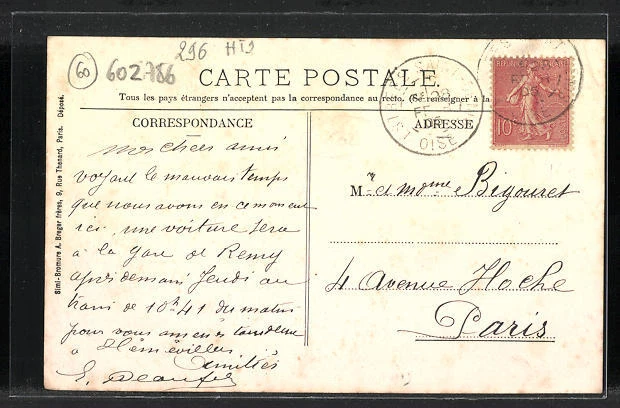 296 HT9
60
602786
CARTE POSTALE
Tous les pays étrangers n'acceptent pas la correspondance au recto. (Se renseigner à la
CORRESPONDANCE
ADRESSE
RÉPUBLIQUE FRANÇAISE
10
OISE
Simi-Bromure A. Breger frères, 9, Rue Thenard, Paris. Déposé.
Mes chers amis
voyant le mauvais temps
que nous avons en ce moment
ici, une voiture sera
à la gare de Remy
après demain Jeudi au
train de 10h41 du matin
pour vous amener
à Hémévillers
Amitiés
E.
Mr et Mme Bigouret
4 Avenue Hoche
Paris